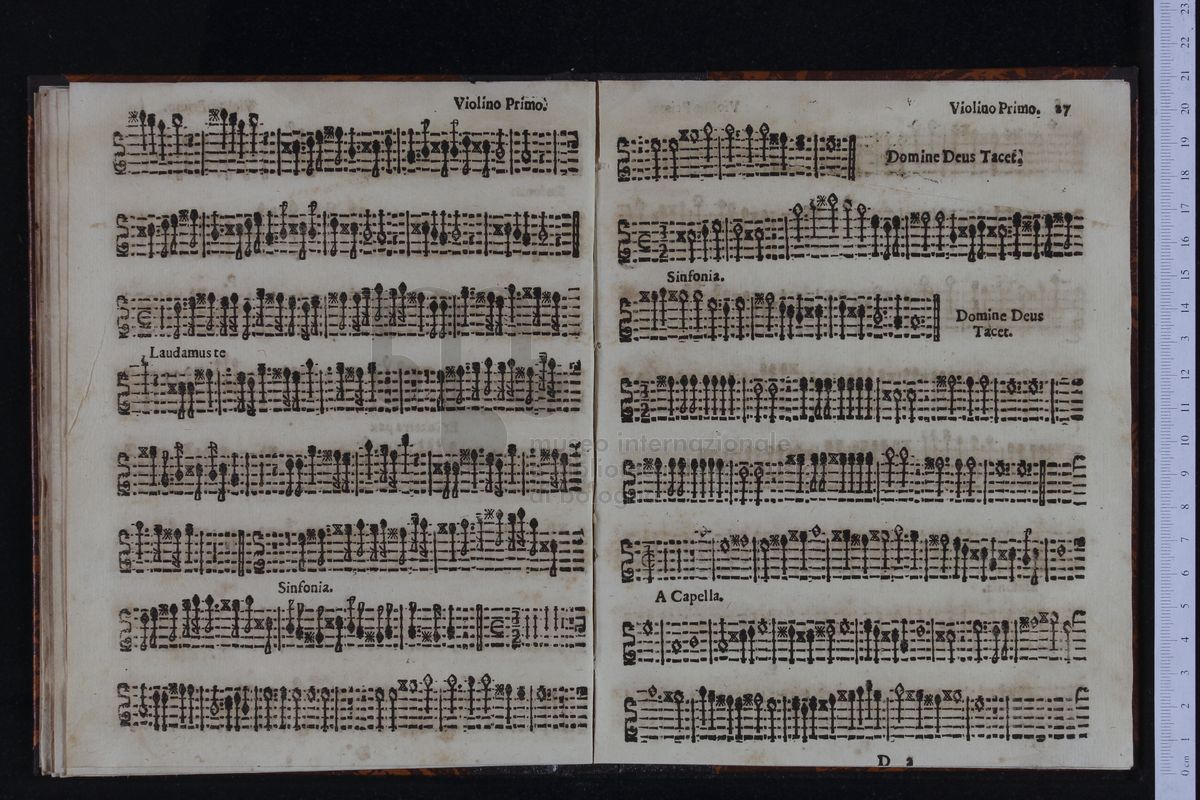 Violino Primo.
Laudamus te
Sinfonia.
Violino Primo. 27
Domine Deus Tacet.
Sinfonia.
Domine Deus
Tacet.
A Capella.
D 2
museo internazionale
di bologna